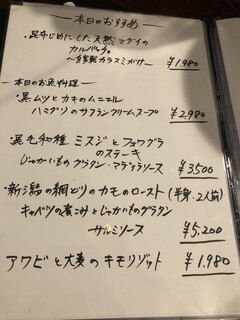 本日のおすすめ
・昆布じめにした天然マダイの
カルパッチョ
～自家製カラスミがけ～ ¥1,980
本日のお魚料理
・黒ムツとカキのムニエル
ハマグリのサフランクリームスープ ¥2,980
・黒毛和種 ミスジとフォワグラ
のステーキ
じゃがいものグラタン・マデラソース ¥3500
・新潟の網どりのカモのロースト(半身・2人前)
キャベツの煮こみとじゃがいものグラタン
サルミソース ¥5,200
アワビと大麦のキモリゾット ¥1,980